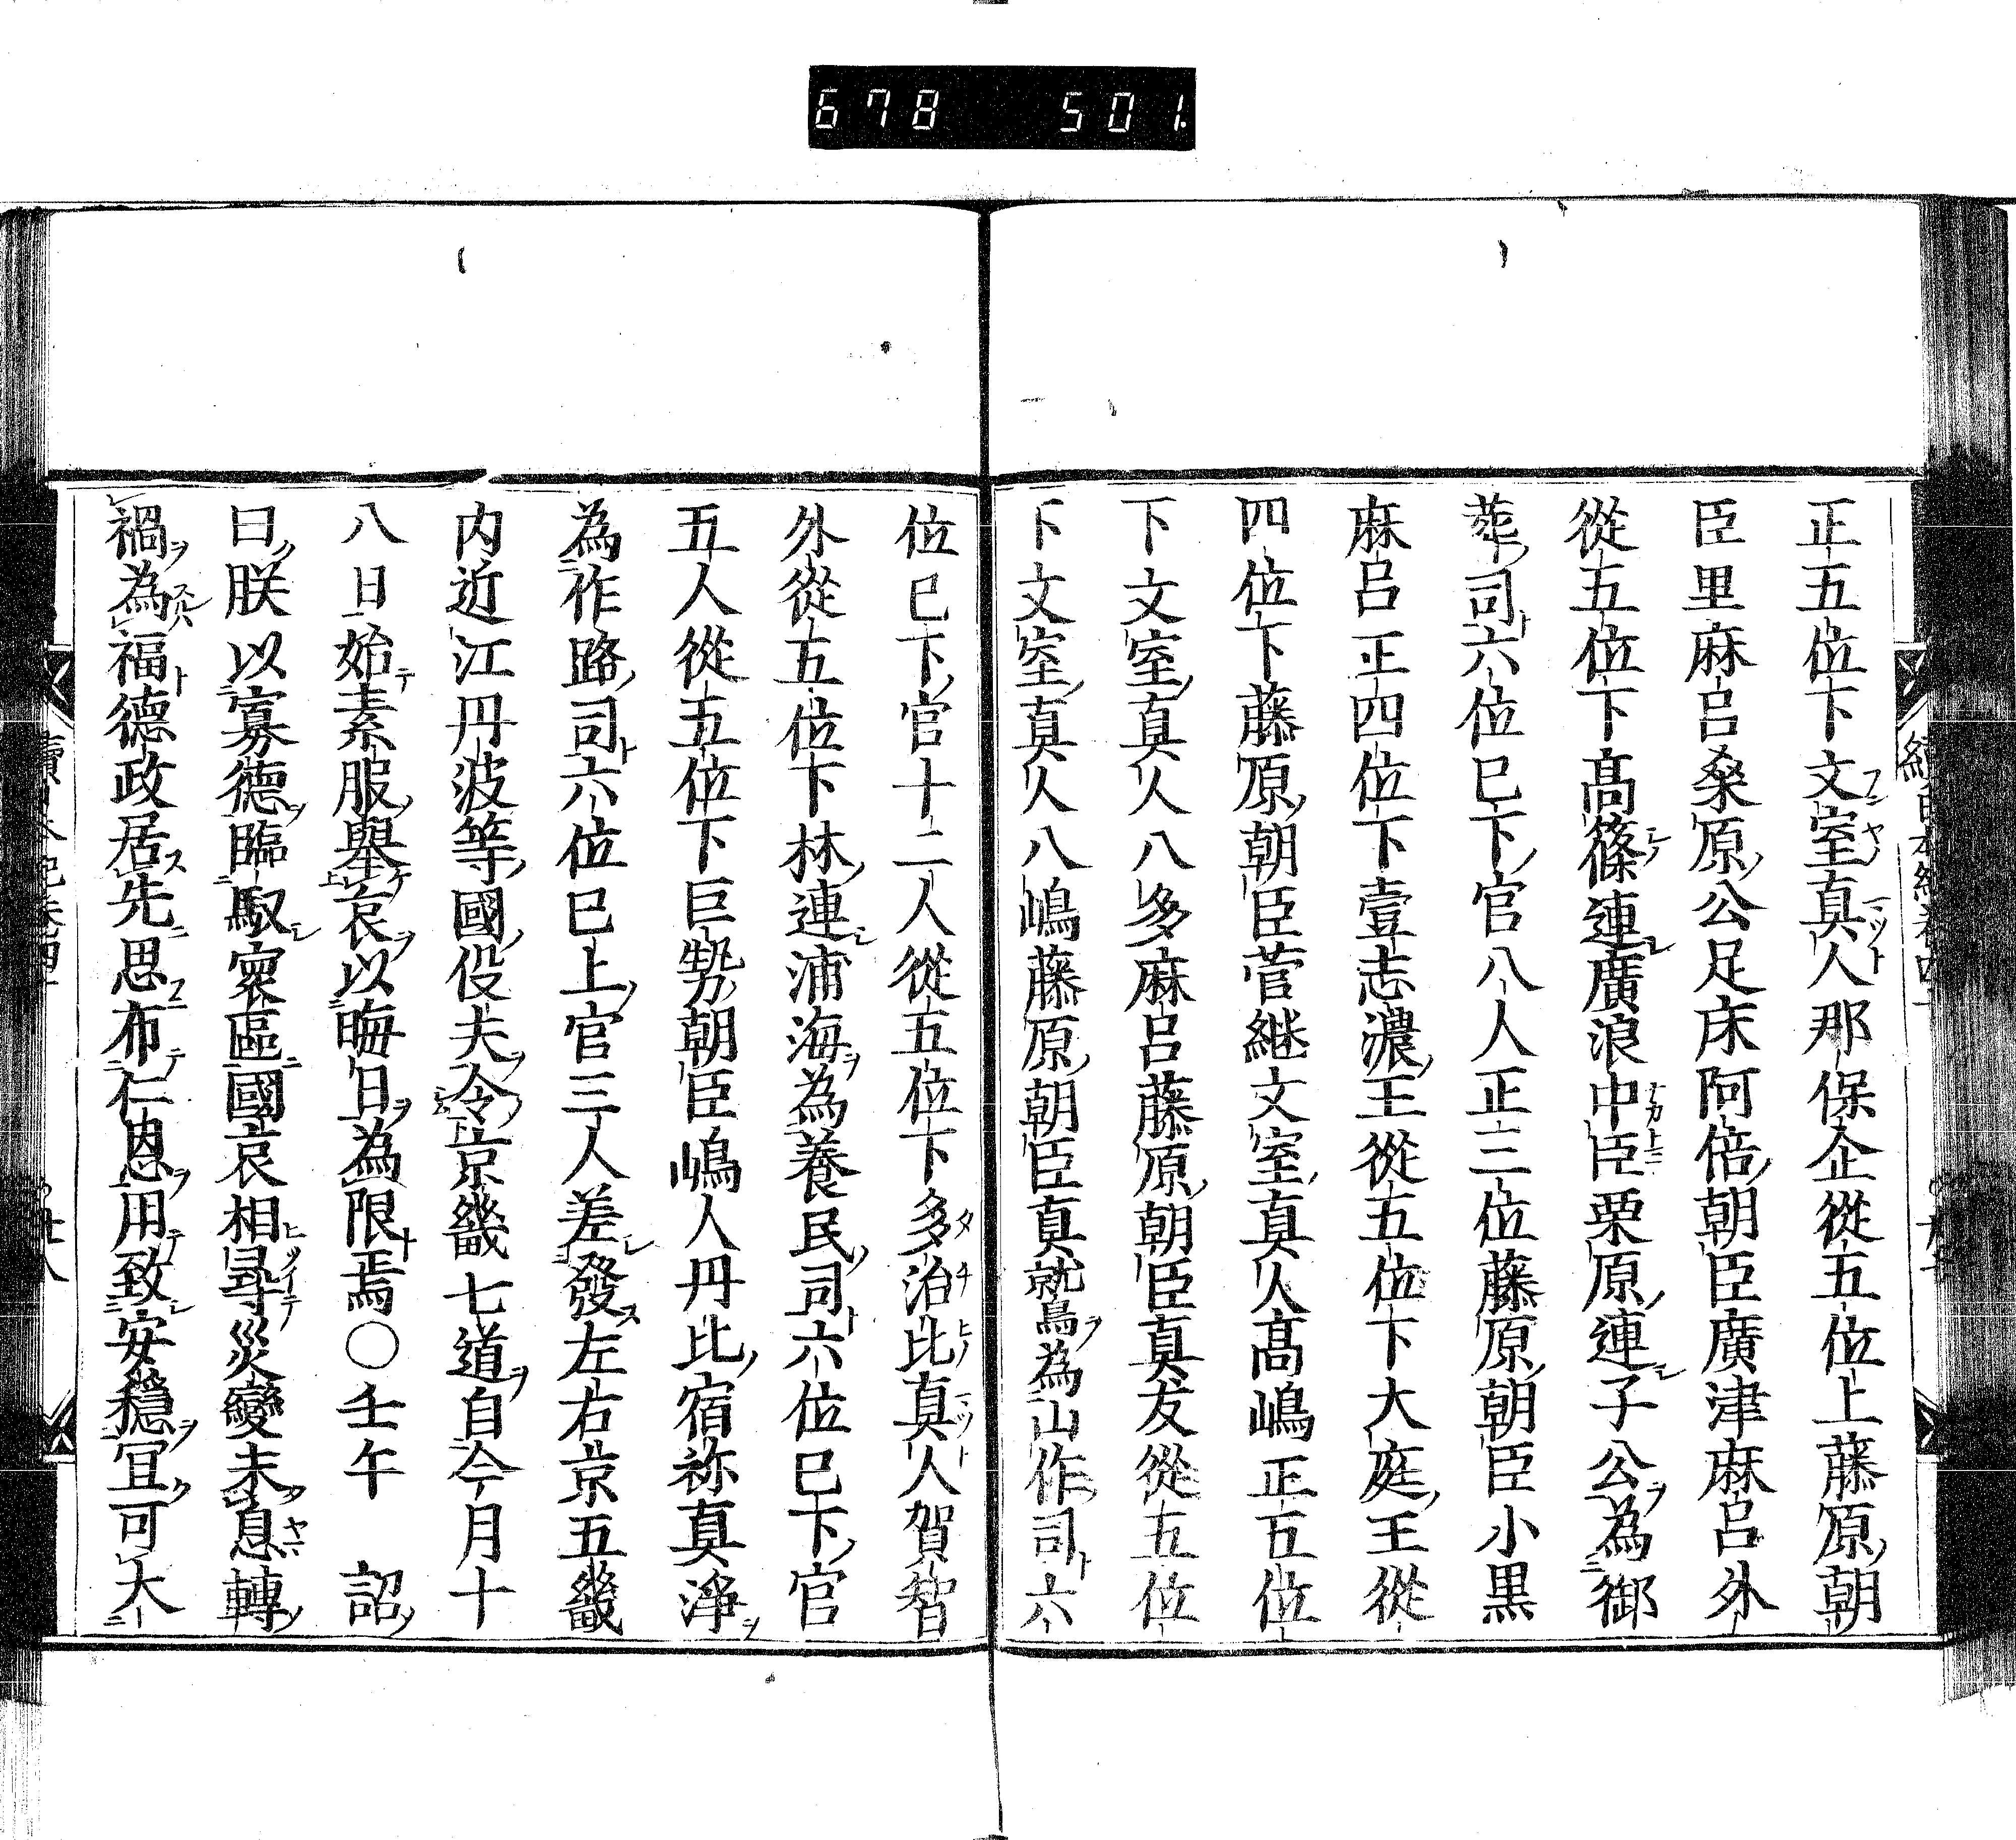 678 501.
正五位下文室真人那保企從五位上藤原朝
臣里麻呂桑原公足床阿倍朝臣廣津麻呂外
從五位下髙篠連廣浪中臣栗原連子公為御
葬司六位已下官八人正三位藤原朝臣小黒
麻呂正四位下壹志濃王從五位下大庭王從
四位下藤原朝臣菅継文室真人髙嶋正五位
下文室真人八多麻呂藤原朝臣真友從五位
下文室真人八嶋藤原朝臣真鷲為山作司六
位已下官十二人從五位下多治比真人賀智
外從五位下林連浦海為養民司六位已下官
五人從五位下巨勢朝臣嶋人丹比宿祢真淨
為作路司六位已上官三人差發左右京五畿
内近江丹波等國役夫令京畿七道自今月十
八日始素服舉哀以晦日為限焉○壬午　詔
曰朕以寡德臨馭寰區國哀相尋災變未息轉
禍為福德政居先思布仁恩用致安穏冝可大